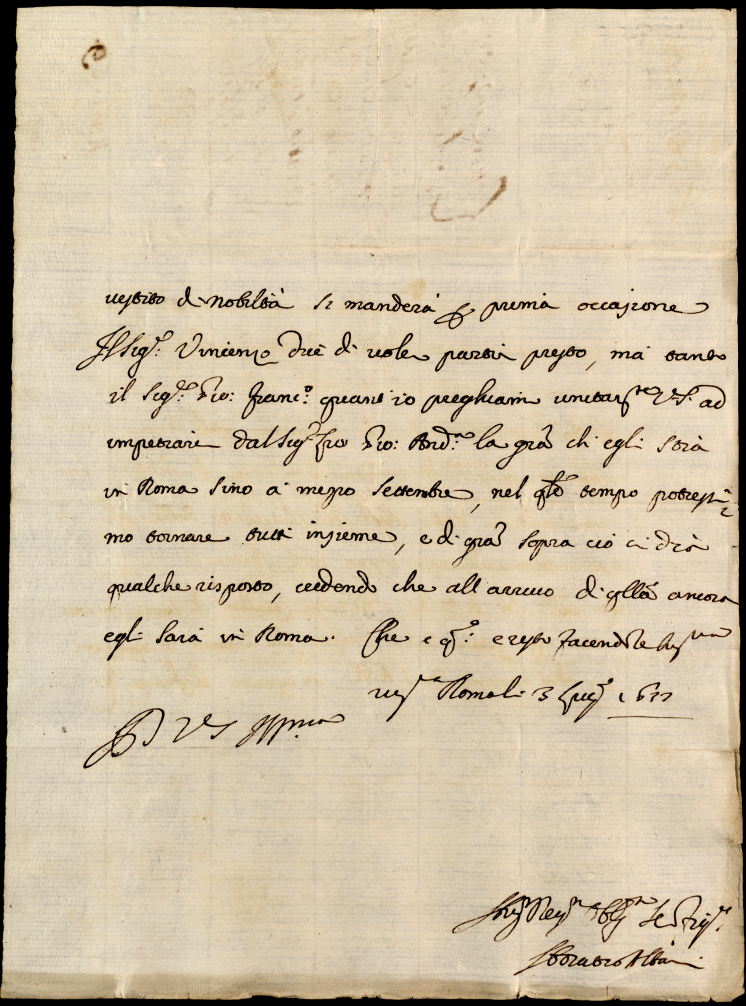 vestito di nobiltà si manderà p prima occasione
Il Sig.r Vincenzo dice di voler partir presto, ma tanto
il Sig.r Gio: Franc.o quant io preghiam unitam.te V.S. ad
impetrare dal Sig.r Gio: And.a la gra che egli stia
in Roma sino a mezzo Settembre, nel qle tempo potressi-
mo tornare tutti insieme, e di gra sopra ciò ci dia
qualche risposta, credendo che all arrivo di qlla ancora
egli sarà in Roma. Che è q.to e resto facendole
Roma li 3 1633
D V.S. Ill.ma